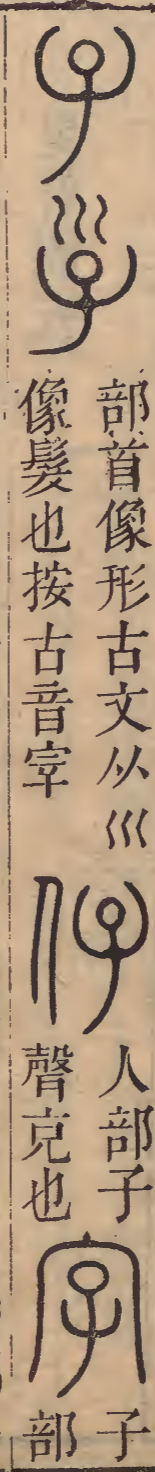 子㜽
部首像形古文从巛
像髮也按古音宰
仔
人部子
聲克也
字
子
部